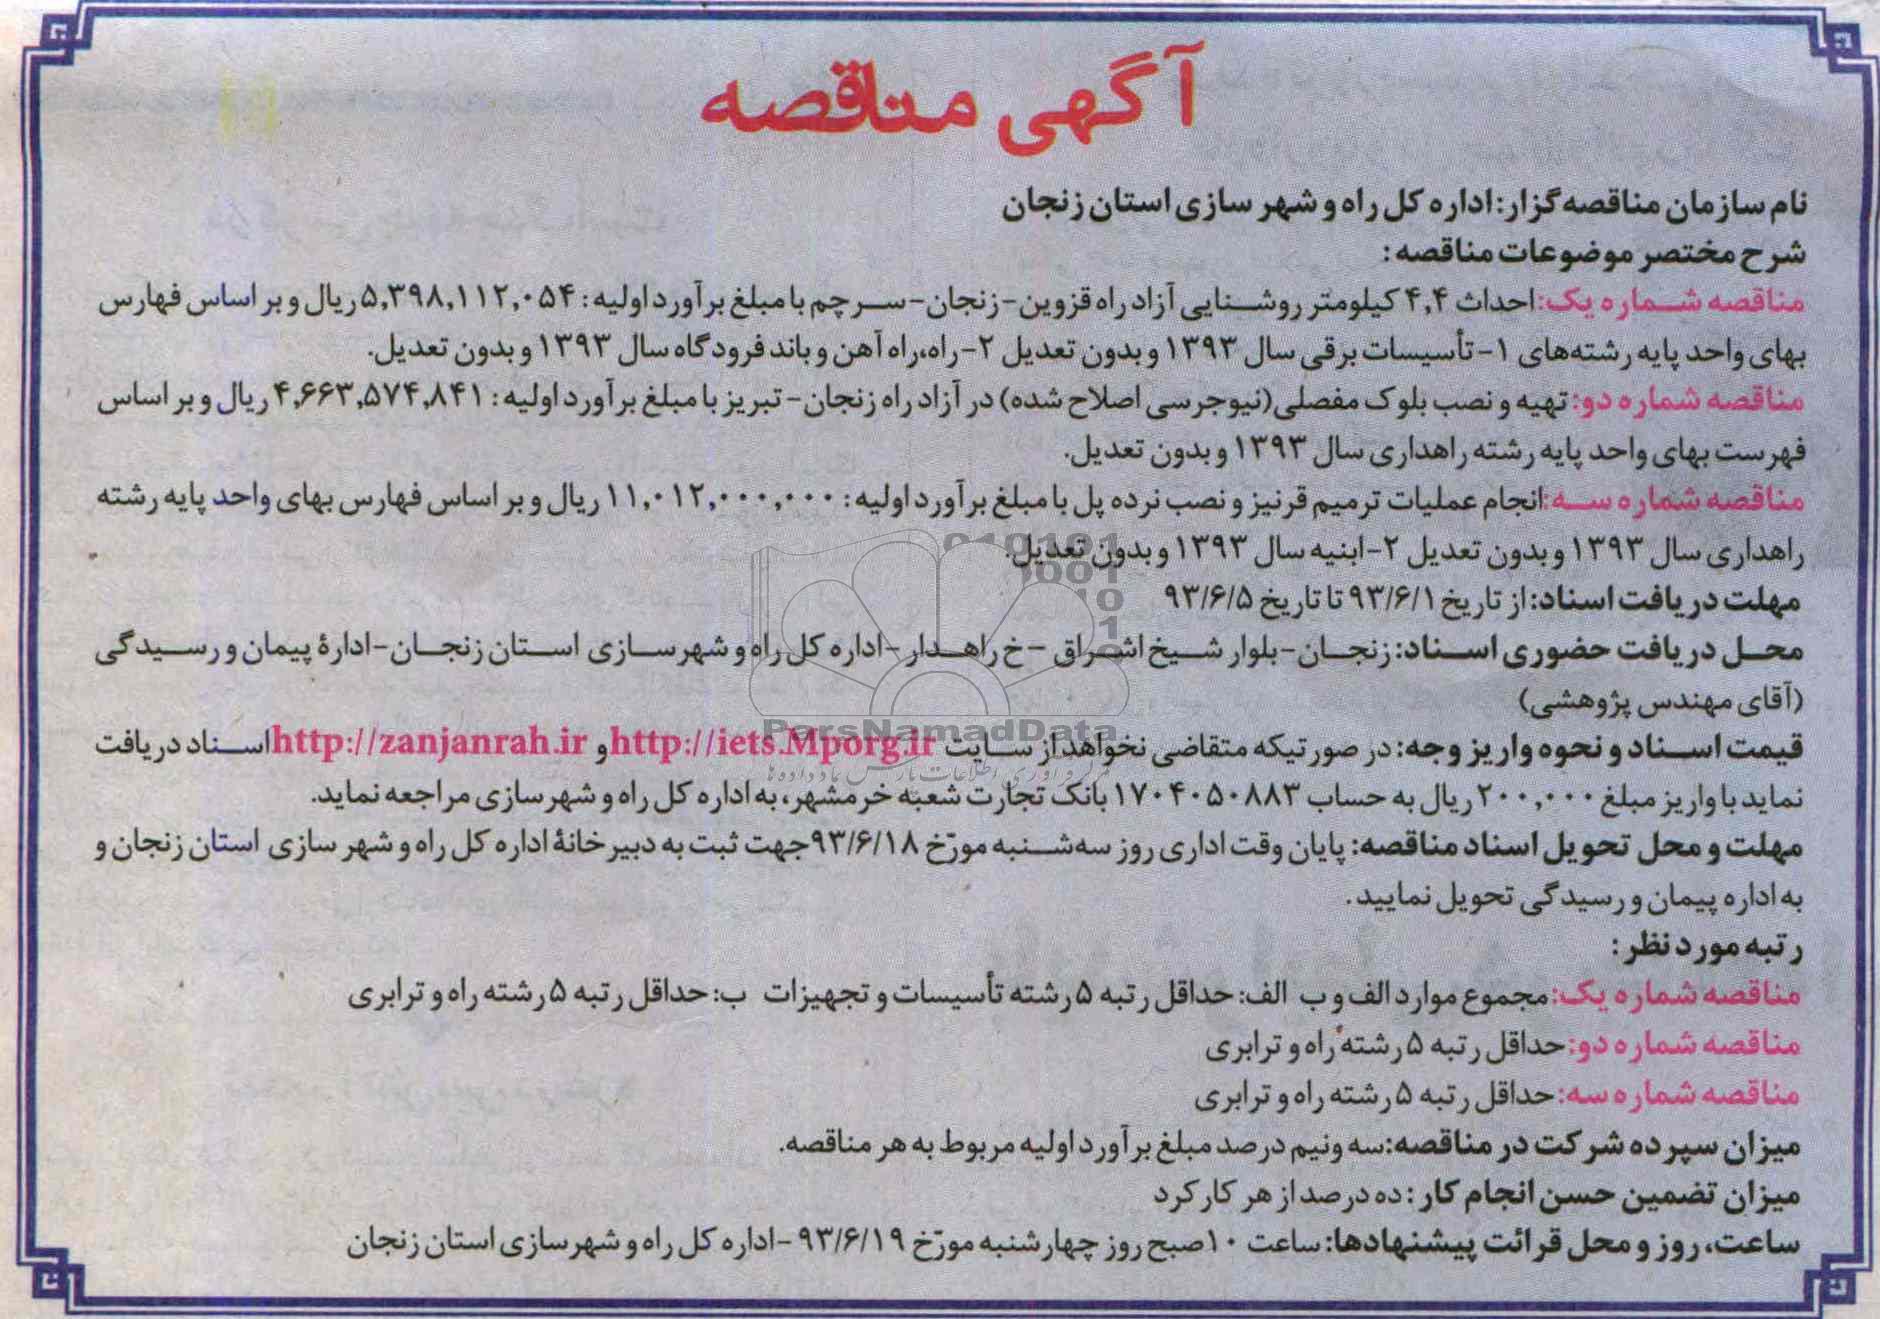 آگهی مناقصه
نام سازمان مناقصه‌گزار: اداره کل راه و شهر سازی استان زنجان
شرح مختصر موضوعات مناقصه:
مناقصه شماره یک: احداث ۴,۴ کیلومتر روشنایی آزاد راه قزوین-زنجان-سرچم با مبلغ برآورد اولیه: ۵,۳۹۸,۱۱۲,۰۵۴ ریال و بر اساس فهارس
بهای واحد پایه رشته‌های ۱- تأسیسات برقی سال ۱۳۹۳ و بدون تعدیل ۲-راه،راه آهن و باند فرودگاه سال ۱۳۹۳ و بدون تعدیل.
مناقصه شماره دو: تهیه و نصب بلوک مفصلی(نیوجرسی اصلاح شده) در آزاد راه زنجان- تبریز با مبلغ برآورد اولیه: ۴,۶۶۳,۵۷۴,۸۴۱ ریال و بر اساس
فهرست بهای واحد پایه رشته راهداری سال ۱۳۹۳ و بدون تعدیل.
مناقصه شماره سه: انجام عملیات ترمیم قرنیز و نصب نرده پل با مبلغ برآورد اولیه: ۱۱,۰۱۲,۰۰۰,۰۰۰ ریال و بر اساس فهارس بهای واحد پایه رشته
راهداری سال ۱۳۹۳ و بدون تعدیل ۲-ابنیه سال ۱۳۹۳ و بدون تعدیل.
مهلت دریافت اسناد: از تاریخ ۹۳/۶/۱ تا تاریخ ۹۳/۶/۵
محل دریافت حضوری اسناد: زنجان-بلوار شیخ اشراق -خ راهدار -اداره کل راه و شهرسازی استان زنجان-ادارهٔ پیمان و رسیدگی
(آقای مهندس پژوهشی)
ParsNamadData
قیمت اسناد و نحوه واریز وجه: در صورتیکه متقاضی نخواهد از سایت http://iets.Mporg.ir و http://zanjanrah.ir اسناد دریافت
نماید با واریز مبلغ ۲۰۰,۰۰۰ ریال به حساب ۱۷۰۴۰۵۰۸۸۳ بانک تجارت شعبه خرمشهر، به اداره کل راه و شهرسازی مراجعه نماید.
مهلت و محل تحویل اسناد مناقصه: پایان وقت اداری روز سه‌شنبه مورّخ ۹۳/۶/۱۸ جهت ثبت به دبیرخانهٔ اداره کل راه و شهر سازی استان زنجان و
به اداره پیمان و رسیدگی تحویل نمایید.
رتبه مورد نظر:
مناقصه شماره یک: مجموع موارد الف و ب الف: حداقل رتبه ۵ رشته تأسیسات و تجهیزات ب: حداقل رتبه ۵ رشته راه و ترابری
مناقصه شماره دو: حداقل رتبه ۵ رشته راه و ترابری
مناقصه شماره سه: حداقل رتبه ۵ رشته راه و ترابری
میزان سپرده شرکت در مناقصه: سه ونیم درصد مبلغ برآورد اولیه مربوط به هر مناقصه.
میزان تضمین حسن انجام کار: ده درصد از هر کارکرد
ساعت، روز و محل قرائت پیشنهادها: ساعت ۱۰ صبح روز چهارشنبه مورّخ ۹۳/۶/۱۹ -اداره کل راه و شهرسازی استان زنجان